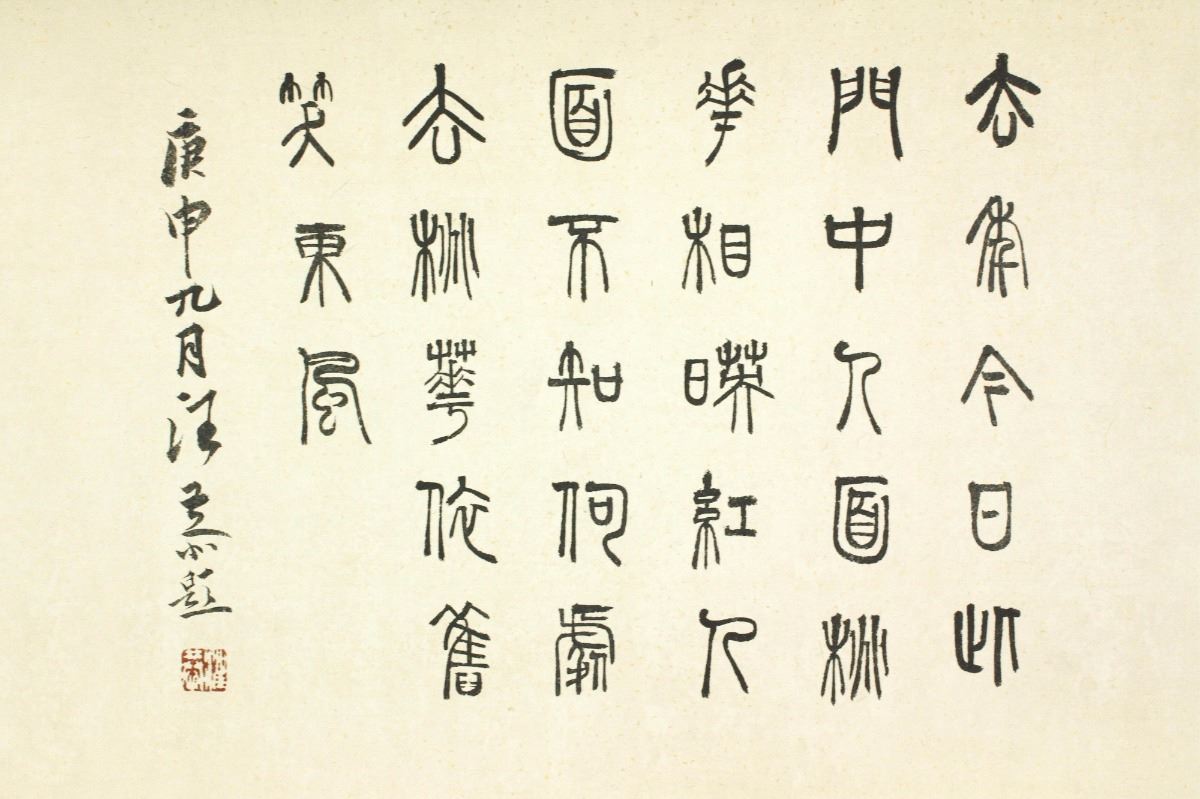 去年今日此
門中人面桃
華相暎紅人
面不知何處
去桃華依舊
笑東風
庚申九月汪題